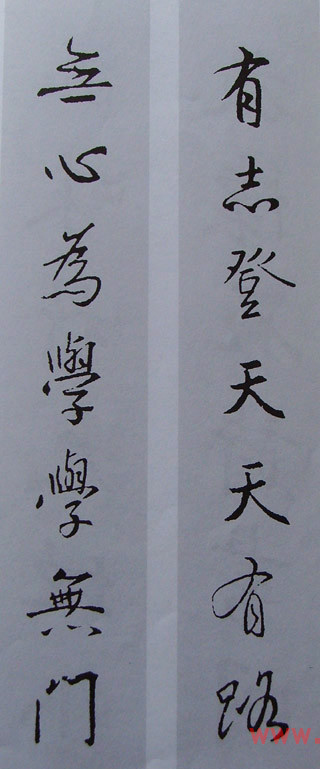 有志登天天有路
無心為學學無門
www.